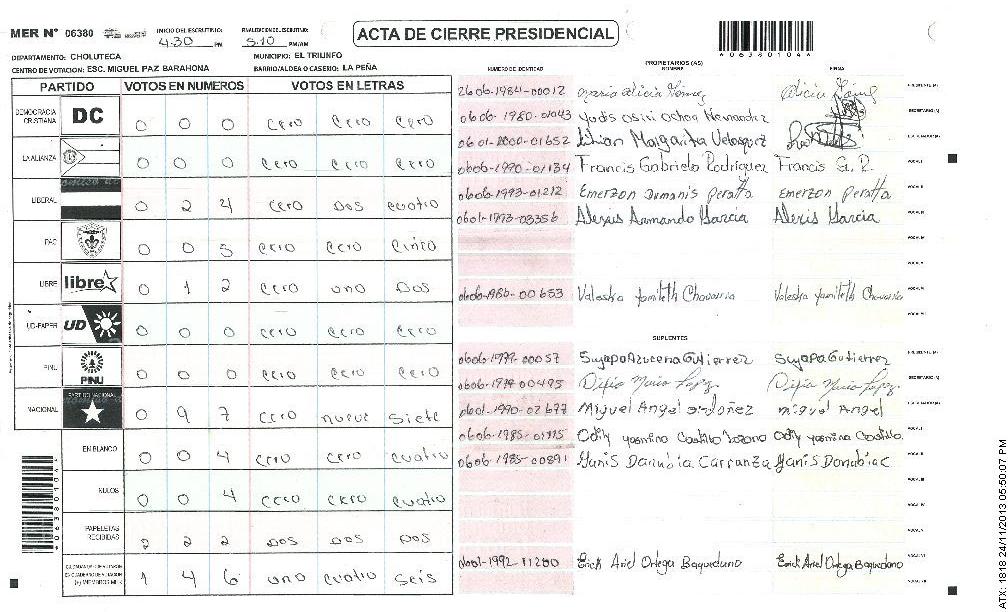 MER N° 06380 INICIO DEL ESCRUTINIO: 4:30 PM FINALIZACION DEL ESCRUTINIO: 5:10 PM/AM
ACTA DE CIERRE PRESIDENCIAL
*063801044*
DEPARTAMENTO: CHOLUTECA MUNICIPIO: EL TRIUNFO
CENTRO DE VOTACION: ESC. MIGUEL PAZ BARAHONA BARRIO/ALDEA O CASERIO: LA PEÑA
PARTIDO VOTOS EN NUMEROS VOTOS EN LETRAS
DEMOCRACIA CRISTIANA DC 0 0 0 cero cero cero
LA ALIANZA 0 0 0 cero cero cero
LIBERAL 0 2 4 cero dos cuatro
PAC 0 0 5 cero cero cinco
LIBRE libre 0 1 2 cero uno dos
UD-FAPER UD 0 0 0 cero cero cero
PINU PINU 0 0 0 cero cero cero
NACIONAL PARTIDO NACIONAL 0 9 7 cero nueve siete
EN BLANCO 0 0 4 cero cero cuatro
NULOS 0 0 4 cero cero cuatro
PAPELETAS RECIBIDAS 2 2 2 dos dos dos
1 4 6 uno cuatro seis
NUMERO DE IDENTIDAD PROPIETARIOS (AS) NOMBRE FIRMA
2606-1984-00012 Maria Alicia Gómez Alicia Gómez PRESIDENTE (A)
0606-1980-01043 Yudis Osiri Ochoa Hernandez SECRETARIO (A)
0601-2000-01652 Lilian Margarita Velasquez ESCRUTADOR (A)
0606-1990-01134 Francis Gabriela Rodriguez Francis G. R. VOCAL I
0606-1993-01212 Emerzon Dumanis Peralta Emerzon Peralta VOCAL II
0601-1993-03356 Alexis Armando Garcia Alexis Garcia VOCAL III
VOCAL IV
VOCAL V
0606-1986-00653 Valeska Yamileth Chavarria Valeska Yamileth Chavarria VOCAL VI
VOCAL VII
SUPLENTES
0606-1979-00057 Suyapa Azucena Gutierrez Suyapa Gutierrez PRESIDENTE (A)
0606-1979-00495 SECRETARIO (A)
0601-1990-02677 Miguel Angel Ordoñez Miguel Angel ESCRUTADOR (A)
Odily Yasmina Castillo Lozano Odily Yasmina Castillo VOCAL I
0606-1985-00891 Yanis Danubia Carranza Yanis Danubia C VOCAL II
VOCAL III
VOCAL IV
VOCAL V
0601-1992-11200 Erick Ariel Ortega Baquedano Erick Ariel Ortega Baquedano VOCAL VI
VOCAL VII
*063801044*
ATX: 1818 24/11/2013 05:50:07 PM